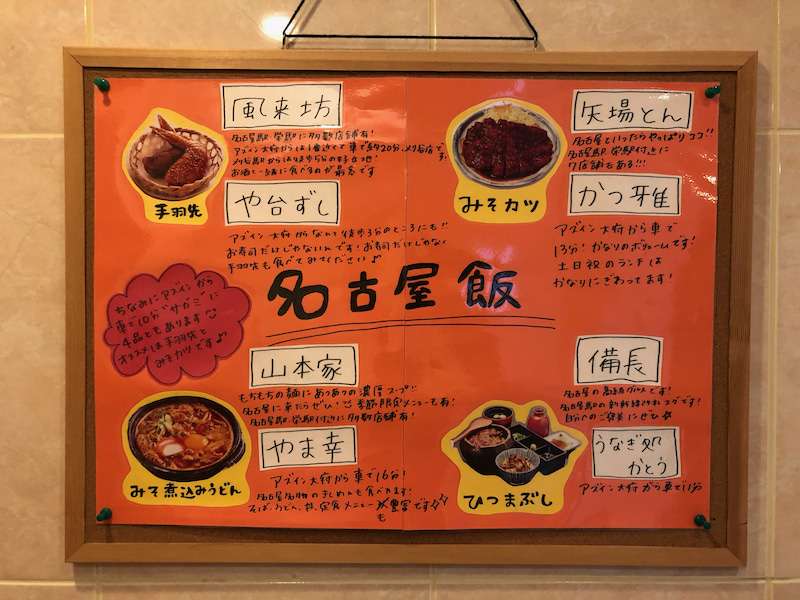 風来坊
名古屋駅・栄駅に多数店舗有!
アズイン大府からは1番近くて車で約20分、刈谷店です。
刈谷駅からは徒歩5分の好立地!
お酒と一緒に食べるのが最高です
手羽先
や台ずし
アズイン大府からなんと徒歩3分のところにも!!
お寿司だけじゃないんです!お寿司だけじゃなく
手羽先も食べてみてください♪
矢場とん
名古屋といったらやっぱりココ!!
名古屋駅・栄駅付近に
7店舗もある!!!
みそカツ
かつ雅
アズイン大府から車で
13分!かなりのボリュームです!
土日祝のランチは
かなりにぎわってます
名古屋飯
ちなみにアズインから
車で10分"サガミ"に
4品ともあります
オススメは手羽先と
みそカツです♪
山本家
もちもちの麺にあつあつの濃厚スープ!!
名古屋に来たらぜひ!季節限定メニューも有!
名古屋駅・栄駅付近に多数店舗有!
みそ煮込みうどん
やま幸
アズイン大府から車で16分!
名古屋名物のきしめんも食べれます!
そば、うどん、丼、定食メニューも豊富です
備長
名古屋の高級グルメです!
名古屋駅の新幹線口スグです!
自分へのご褒美にぜひ☆
ひつまぶし
うなぎ処
かとう
アズイン大府から車で11分